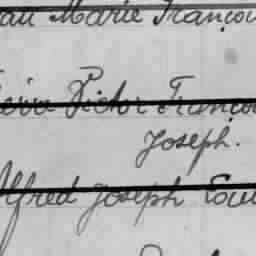 Marie François
Victor François
Joseph.
Alfred Joseph Lou